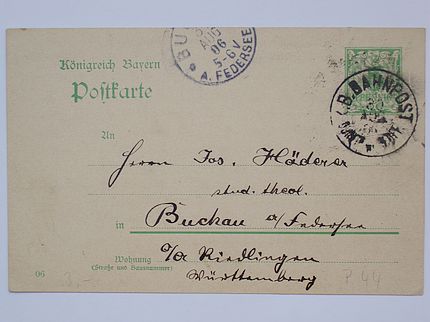 BU
AUG
06
5-6 V
A. FEDERSEE
Königreich Bayern
Postkarte
K.B. BAHNPOST
An
Herrn Jos. Häderer
stud. theol.
in Buchau a/Federsee
Wohnung
(Straße und Hausnummer)
o/a Riedlingen
Württemberg
06
P 44